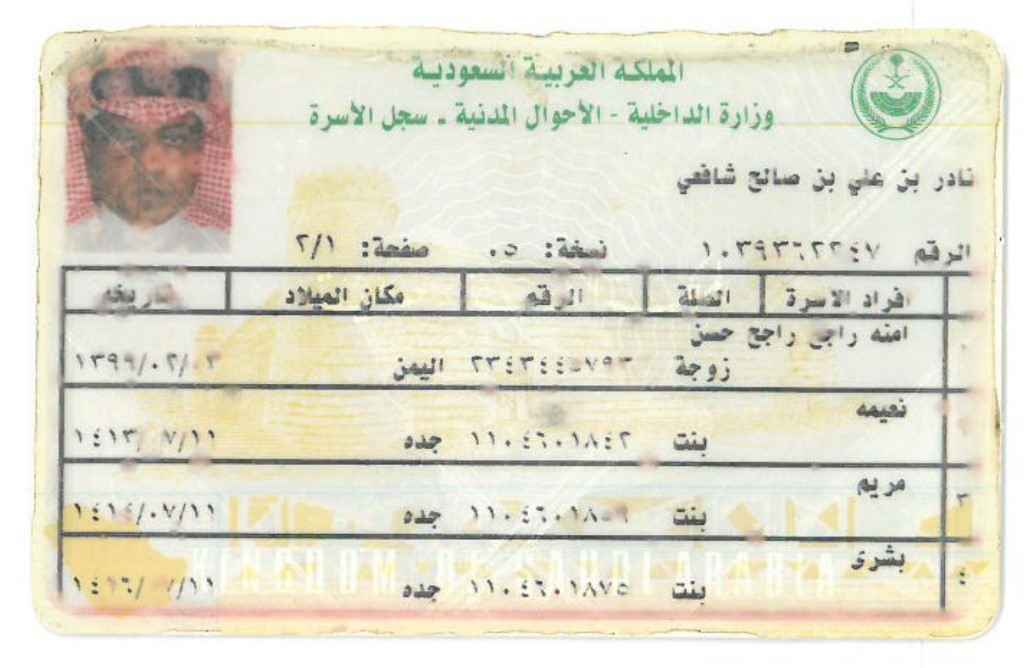 المملكة العربية السعودية
وزارة الداخلية - الأحوال المدنية - سجل الأسرة
نادر بن علي بن صالح شافعي
الرقم ١٠٣٩٣٦٢٢٤٧ نسخة: ٠٥ صفحة: ٢/١
افراد الاسرة الصلة الرقم مكان الميلاد تاريخه
امنه راجح راجح حسن
زوجة اليمن ١٣٩٩/٠٢/٠٣
نعيمه
بنت ١١٠٤٦٠١٨٤٢ جده
مريم
٣ بنت جده ١٤١٤/٠٧/١١
بشرى
٤ بنت ١١٠٤٦٠١٨٧٥ جده
KINGDOM OF SAUDI ARABIA